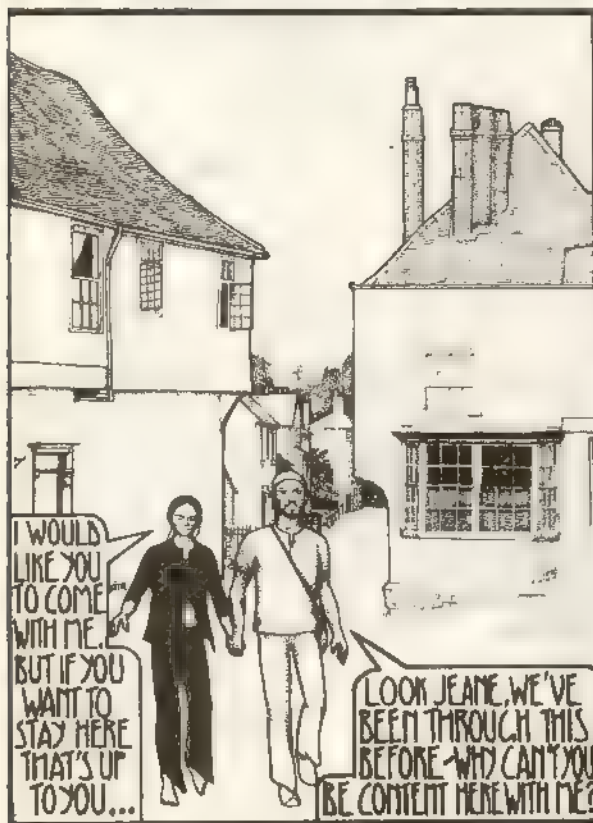 I WOULD
LIKE YOU
TO COME
WITH ME.
BUT IF YOU
WANT TO
STAY HERE
THAT'S UP
TO YOU...
LOOK JEANE, WE'VE
BEEN THROUGH THIS
BEFORE - WHY CAN'T YOU
BE CONTENT HERE WITH ME?